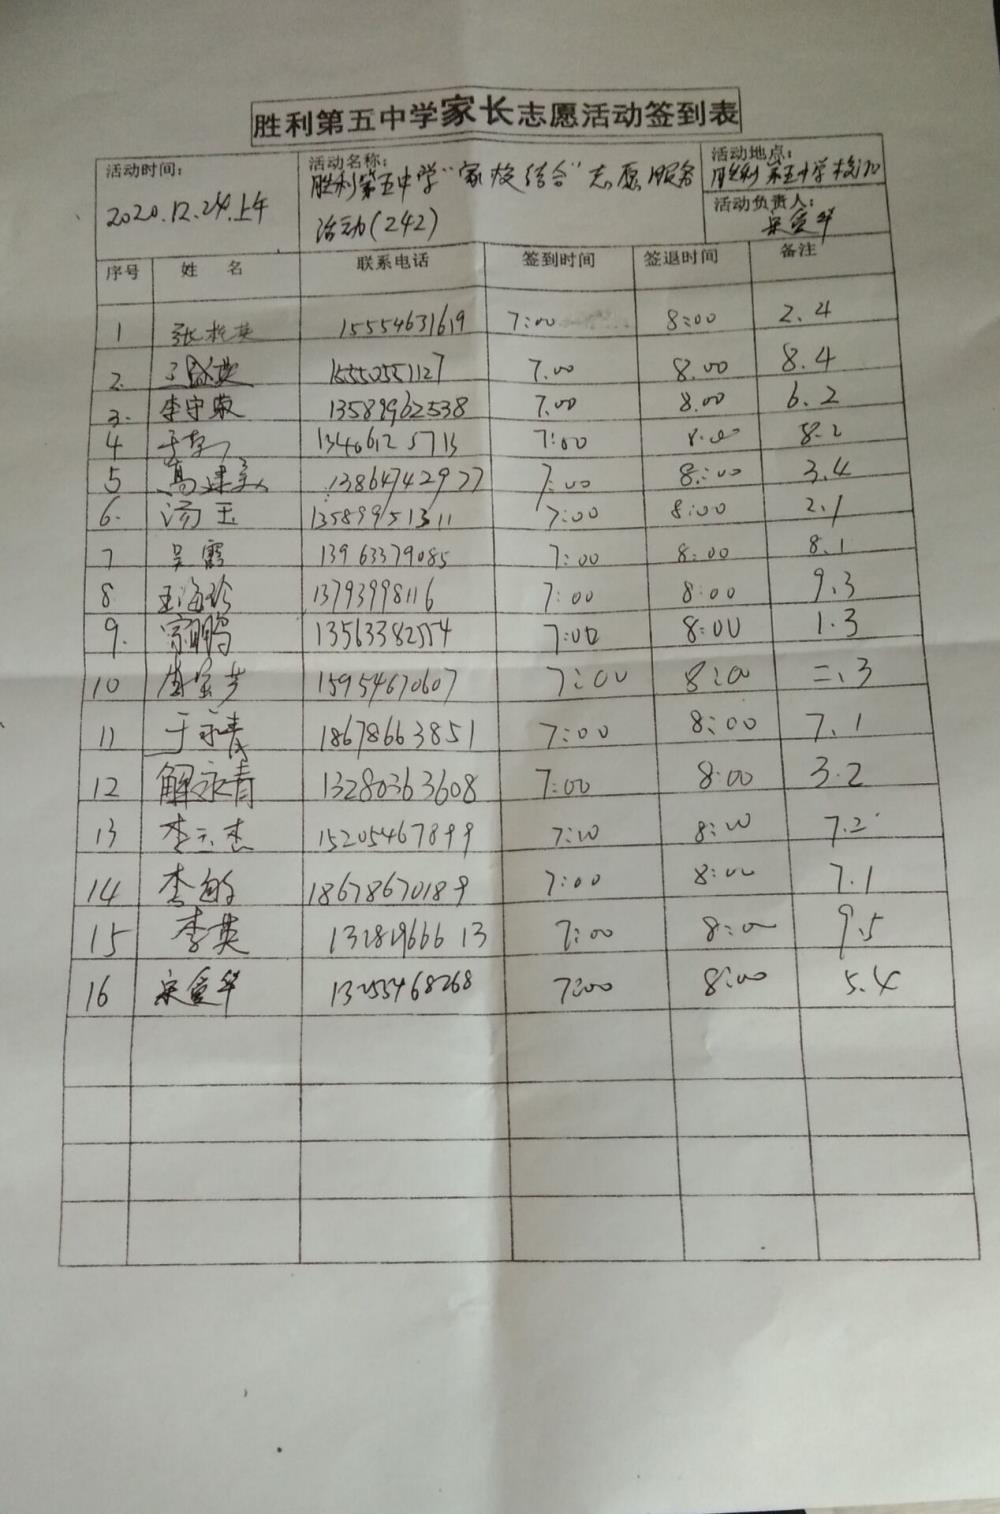 胜利第五中学家长志愿活动签到表
活动时间: 2020.12.24.上午
活动名称: 胜利第五中学"家校结合"志愿服务
活动(242)
活动地点:
胜利第五中学校门口
活动负责人:
宋爱华
序号 姓 名 联系电话 签到时间 签退时间 备注
1 15554631619 7:00 8:00 2.4
2. 15550551127 7.00 8.00 8.4
3. 李守荣 13589962538 7.00 8.00 6.2
4 13406125713 7:00 8:00 8.2
5 高建美 13864742927 7:00 8:00 3.4
6. 汤玉 13589951311 7:00 8:00 2.1
7 吴霞 13963379085 7:00 8:00 8.1
8 王海珍 13793998116 7:00 8:00 9.3
9. 宗鹏 13563382554 7:00 8:00 1.3
10 15954670607 7:00 8:00 二.3
11 于永青 18678663851 7:00 8:00 7.1
12 解永青 13280363608 7:00 8:00 3.2
13 李云杰 15205467899 7:00 8:00 7.2
14 李敏 18678670189 7:00 8:00 7.1
15 李英 13281966613 7:00 8:00 9.5
16 宋爱华 13255468268 7:00 8:00 5.4